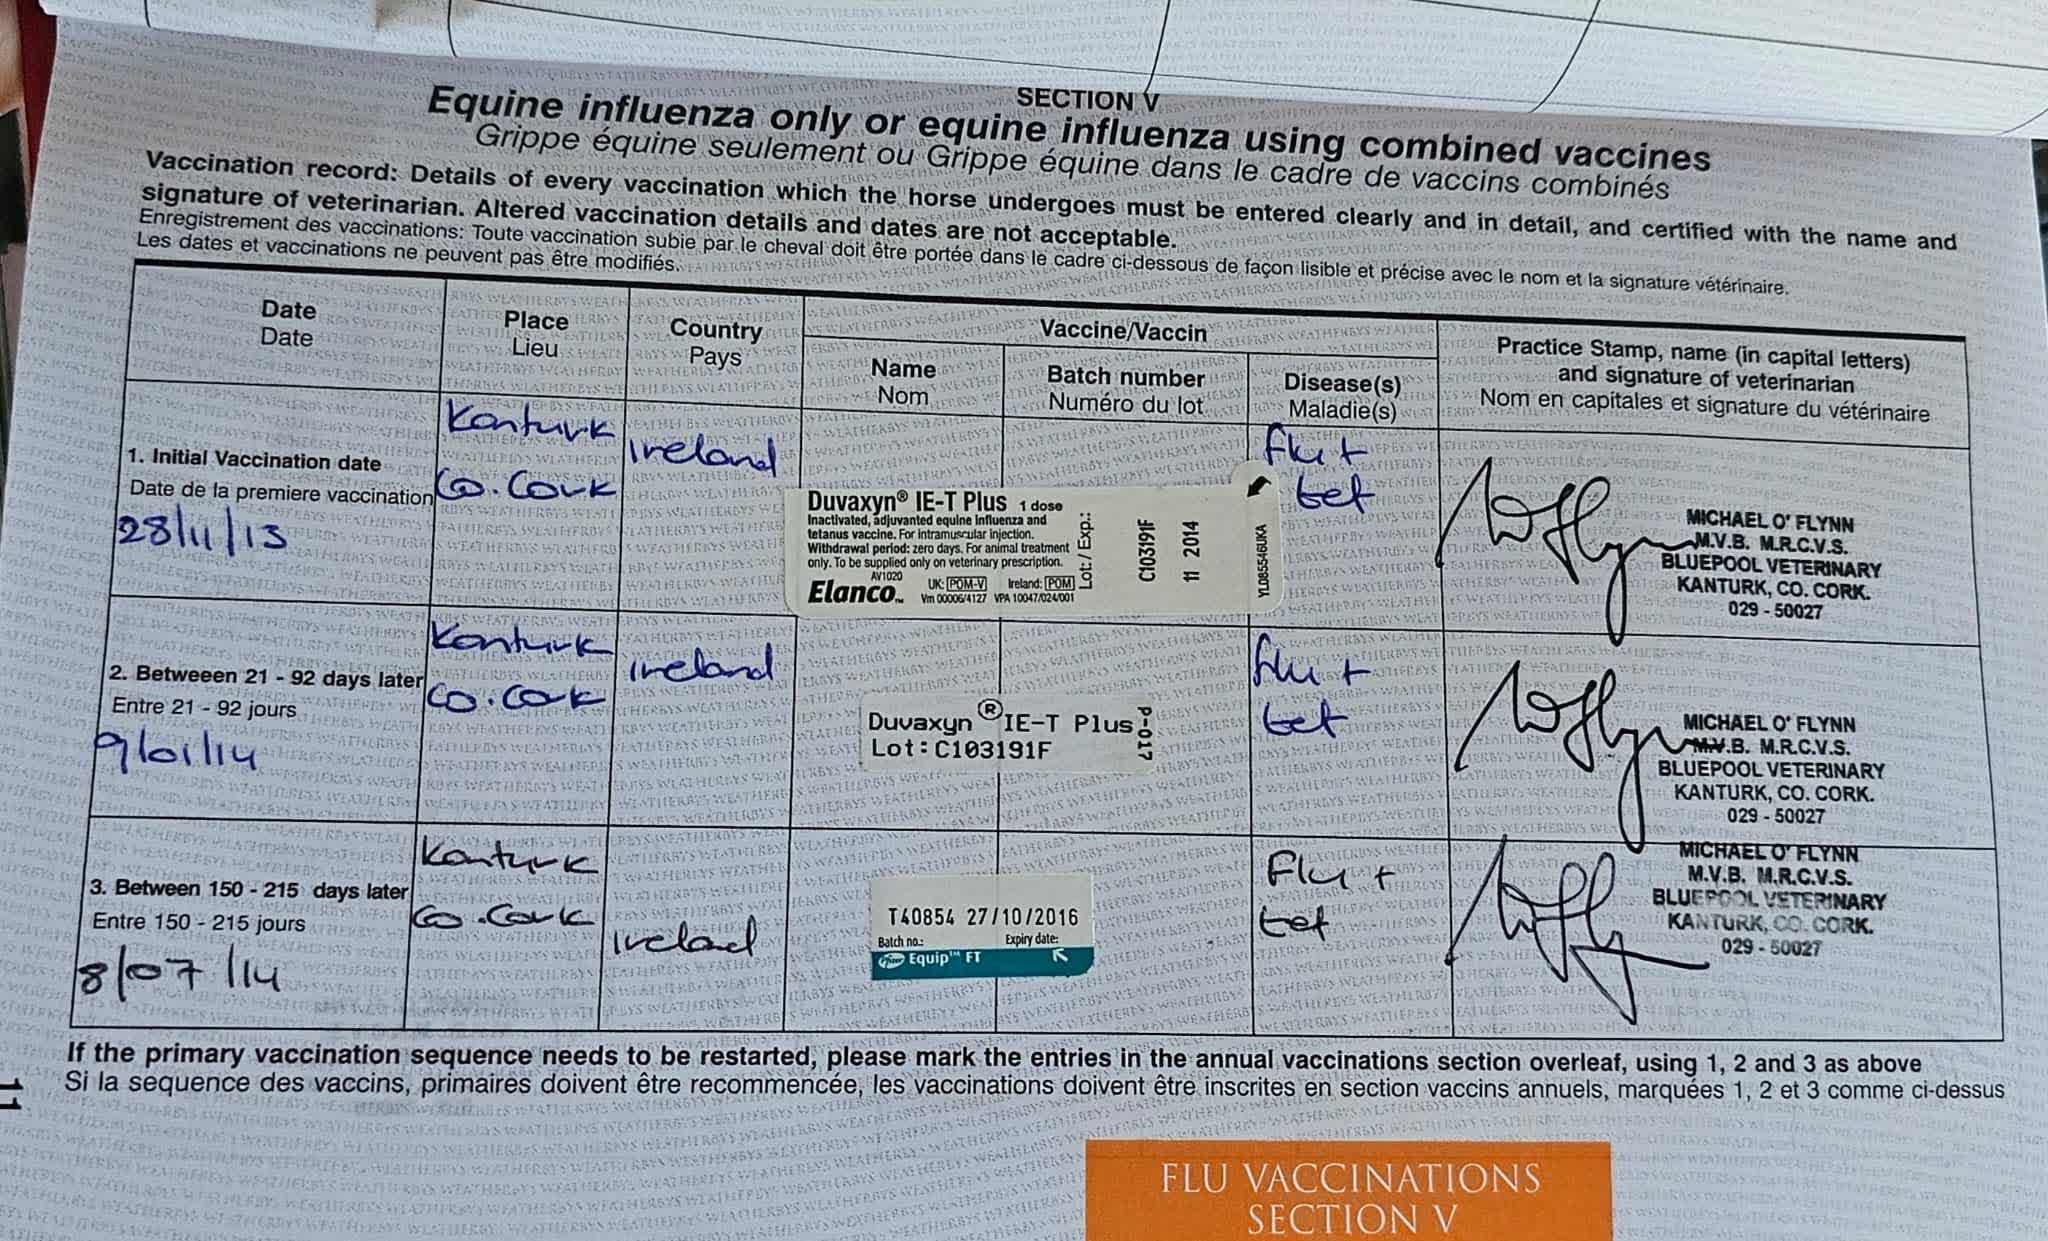 SECTION V
Equine influenza only or equine influenza using combined vaccines
Grippe équine seulement ou Grippe équine dans le cadre de vaccins combinés
Vaccination record: Details of every vaccination which the horse undergoes must be entered clearly and in detail, and certified with the name and
signature of veterinarian. Altered vaccination details and dates are not acceptable.
Enregistrement des vaccinations: Toute vaccination subie par le cheval doit être portée dans le cadre ci-dessous de façon lisible et précise avec le nom et la signature vétérinaire.
Les dates et vaccinations ne peuvent pas être modifiés.
Date
Date
Place
Lieu
Country
Pays
Vaccine/Vaccin
Name
Nom
Batch number
Numéro du lot
Disease(s)
Maladie(s)
Practice Stamp, name (in capital letters)
and signature of veterinarian
Nom en capitales et signature du vétérinaire
1. Initial Vaccination date
Date de la premiere vaccination
28/11/13
Kanturk
Co. Cork
Ireland
Duvaxyn® IE-T Plus 1 dose
Inactivated, adjuvanted equine influenza and
tetanus vaccine. For intramuscular injection.
Withdrawal period: zero days. For animal treatment
only. To be supplied only on veterinary prescription.
AV1020
Elanco™
UK: POM-V Ireland: POM
Vm 00006/4127 VPA 10047/024/001
Lot./ Exp.:
C103191F
11 2014
YL085546UKA
flu +
tet
MICHAEL O' FLYNN
M.V.B. M.R.C.V.S.
BLUEPOOL VETERINARY
KANTURK, CO. CORK.
029 - 50027
2. Betweeen 21 - 92 days later
Entre 21 - 92 jours
9/01/14
Kanturk
Co. Cork
Ireland
Duvaxyn ® IE-T Plus
Lot: C103191F
P-017
flu +
tet
MICHAEL O' FLYNN
M.V.B. M.R.C.V.S.
BLUEPOOL VETERINARY
KANTURK, CO. CORK.
029 - 50027
3. Between 150 - 215 days later
Entre 150 - 215 jours
8/07/14
Kanturk
Co. Cork
Ireland
T40854 27/10/2016
Batch no.: Expiry date:
Pfizer Equip™ FT
Flu +
tet
MICHAEL O' FLYNN
M.V.B. M.R.C.V.S.
BLUEPOOL VETERINARY
KANTURK, CO. CORK.
029 - 50027
If the primary vaccination sequence needs to be restarted, please mark the entries in the annual vaccinations section overleaf, using 1, 2 and 3 as above
Si la sequence des vaccins, primaires doivent être recommencée, les vaccinations doivent être inscrites en section vaccins annuels, marquées 1, 2 et 3 comme ci-dessus
11
FLU VACCINATIONS
SECTION V